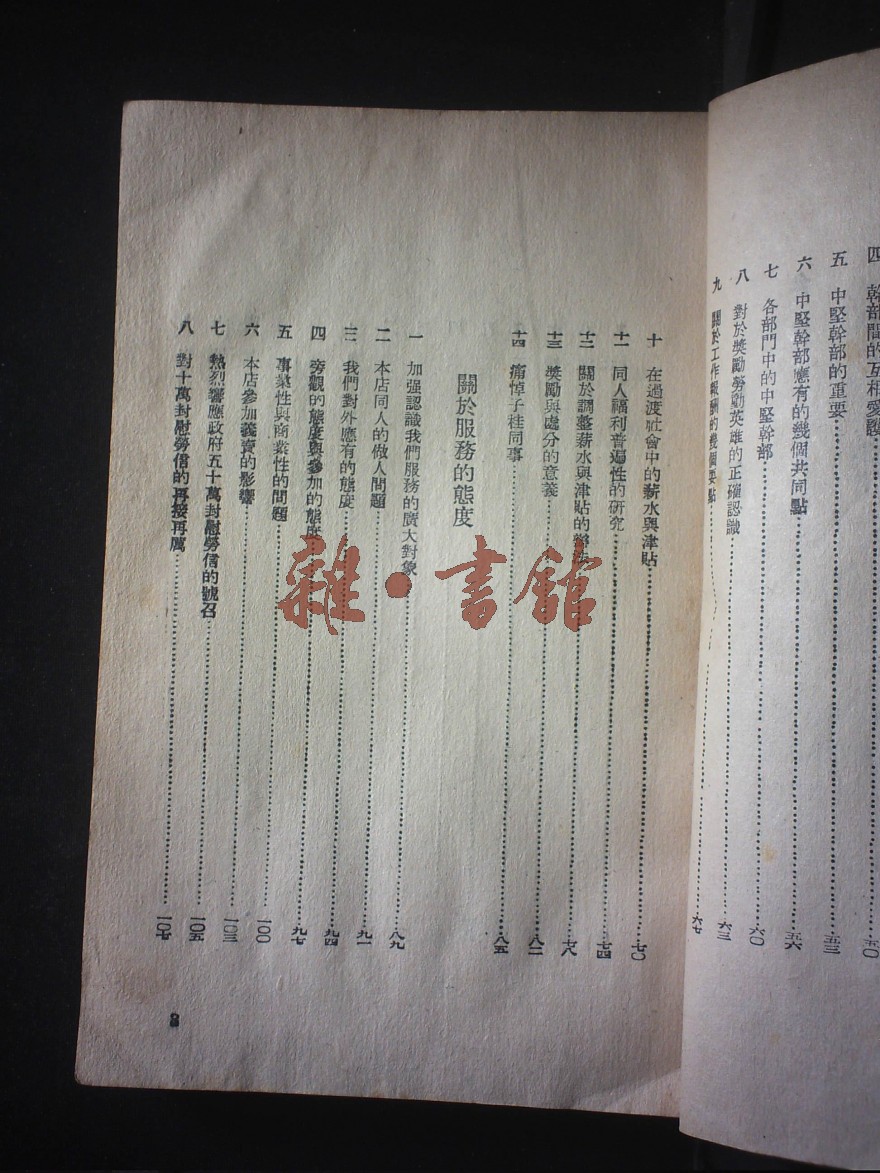 四 幹部間的互相愛護 五〇
五 中堅幹部的重要 五三
六 中堅幹部應有的幾個共同點 五六
七 各部門中的中堅幹部 六〇
八 對於獎勵勞動英雄的正確認識 六三
九 關於工作報酬的幾個要點 六七
十 在過渡社會中的薪水與津貼 七〇
十一 同人福利普遍性的研究 七四
十二 關於調整薪水與津貼的辦法 七八
十三 獎勵與處分的意義 八二
十四 痛悼子桂同事 八五
關於服務的態度
一 加强認識我們服務的廣大對象 八九
二 本店同人的做人問題 九一
三 我們對外應有的態度 九四
四 旁觀的態度與參加的態度 九七
五 事業性與商業性的問題 一〇〇
六 本店參加義賣的影響 一〇三
七 熱烈響應政府五十萬封慰勞信的號召 一〇五
八 對十萬封慰勞信的再接再厲 一〇七
3
雜·書館